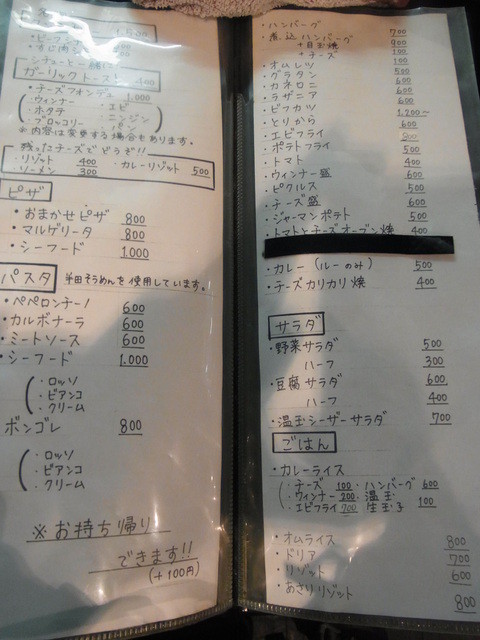 1,500
シチューと一緒に
ガーリックトースト 400
・チーズフォンデュ 1,000
・ウィンナー ・エビ
・ホタテ ・ニンジン
・ブロッコリー ・パン
※内容は変更する場合もあります。
残ったチーズでどうぞ!!
・リゾット 400 ・カレーリゾット 500
・ソーメン 300
ピザ
・おまかせピザ 800
・マルゲリータ 800
・シーフード 1,000
パスタ 半田そうめんを使用しています。
・ペペロンチーノ 600
・カルボナーラ 600
・ミートソース 600
・シーフード 1,000
・ロッソ
・ビアンコ
・クリーム
ボンゴレ 800
・ロッソ
・ビアンコ
・クリーム
※お持ち帰り
できます!!
(+100円)
・ハンバーグ 700
・煮込ハンバーグ 800
+目玉焼 900
+チーズ 100
・オムレツ 500
・グラタン 600
・カネロニ 600
・ラザニア 600
・ビフカツ 1,200~
・とりから 600
・エビフライ
・ポテトフライ 500
・トマト 400
・ウィンナー盛 600
・ピクルス 500
・チーズ盛 600
・ジャーマンポテト 500
・トマトとチーズオーブン焼 400
・カレー(ルーのみ) 500
・チーズカリカリ焼 400
サラダ
・野菜サラダ 500
ハーフ 300
・豆腐サラダ 600
ハーフ 400
・温玉シーザーサラダ 700
ごはん
・カレーライス
・チーズ 100 ・ハンバーグ 600
・ウィンナー 200 ・温玉
・エビフライ 700 生玉子 100
・オムライス 800
・ドリア 700
・リゾット 600
・あさりリゾット 800